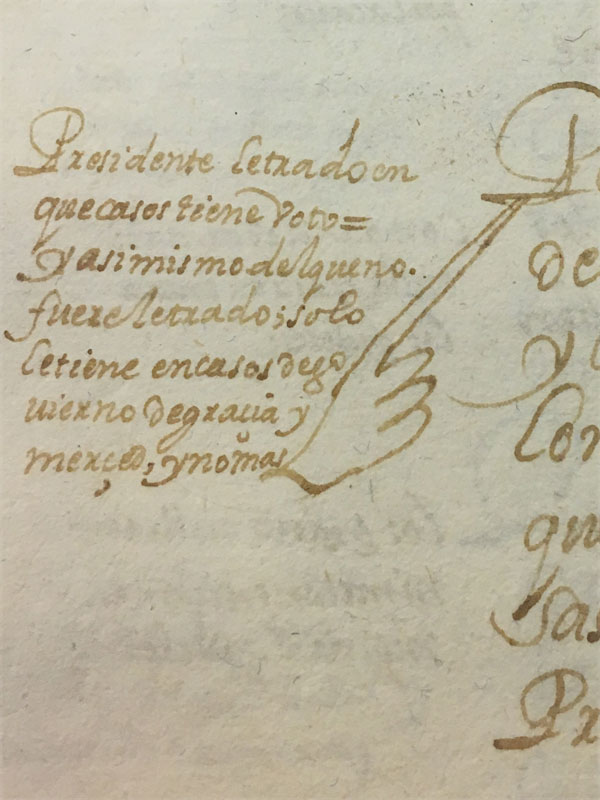 Presidente letrado en
que casos tiene Voto=
y asimismo del que no.
fuere letrado; solo
le tiene en casos de go
uierno de gracia y
merçed, y no mas
de
y
qu
Pr